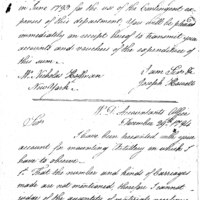 in June 1793 for the use of the Contingent ex
penses of this department, You will be pleased
immediately on receipt hereof to transmit your
accounts and vouchers of the expenditure of
this sum.
I am Sir &c
Mr. Nicholas Hoffman
Joseph Howell
New York
W.D. Accountants Office
November 24th 1794
Sir
I have been presented with your
account for mounting Artillery on which I
have to observe
1st That the number and kinds of Carriages
made are not mentioned, therefore I cannot
judge of the quantities of materials